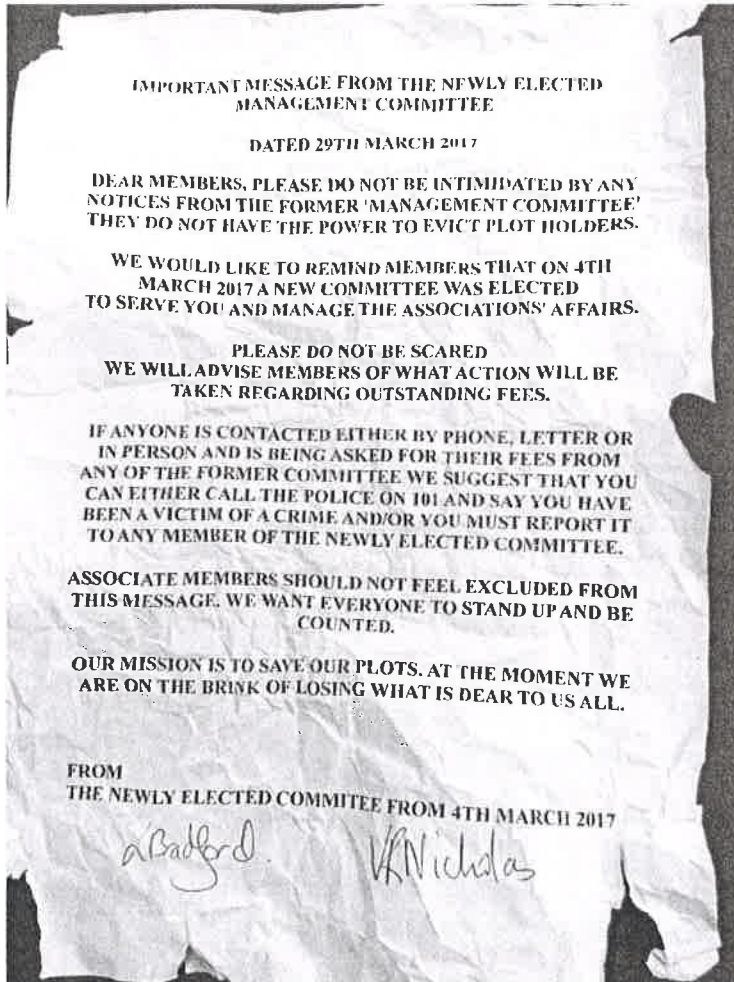 IMPORTANT MESSAGE FROM THE NEWLY ELECTED
MANAGEMENT COMMITTEE
DATED 29TH MARCH 2017
DEAR MEMBERS, PLEASE DO NOT BE INTIMIDATED BY ANY
NOTICES FROM THE FORMER 'MANAGEMENT COMMITTEE'
THEY DO NOT HAVE THE POWER TO EVICT PLOT HOLDERS.
WE WOULD LIKE TO REMIND MEMBERS THAT ON 4TH
MARCH 2017 A NEW COMMITTEE WAS ELECTED
TO SERVE YOU AND MANAGE THE ASSOCIATIONS' AFFAIRS.
PLEASE DO NOT BE SCARED
WE WILL ADVISE MEMBERS OF WHAT ACTION WILL BE
TAKEN REGARDING OUTSTANDING FEES.
IF ANYONE IS CONTACTED EITHER BY PHONE, LETTER OR
IN PERSON AND IS BEING ASKED FOR THEIR FEES FROM
ANY OF THE FORMER COMMITTEE WE SUGGEST THAT YOU
CAN EITHER CALL THE POLICE ON 101 AND SAY YOU HAVE
BEEN A VICTIM OF A CRIME AND/OR YOU MUST REPORT IT
TO ANY MEMBER OF THE NEWLY ELECTED COMMITTEE.
ASSOCIATE MEMBERS SHOULD NOT FEEL EXCLUDED FROM
THIS MESSAGE. WE WANT EVERYONE TO STAND UP AND BE
COUNTED.
OUR MISSION IS TO SAVE OUR PLOTS. AT THE MOMENT WE
ARE ON THE BRINK OF LOSING WHAT IS DEAR TO US ALL.
FROM
THE NEWLY ELECTED COMMITEE FROM 4TH MARCH 2017
aBadford. VRNicholas